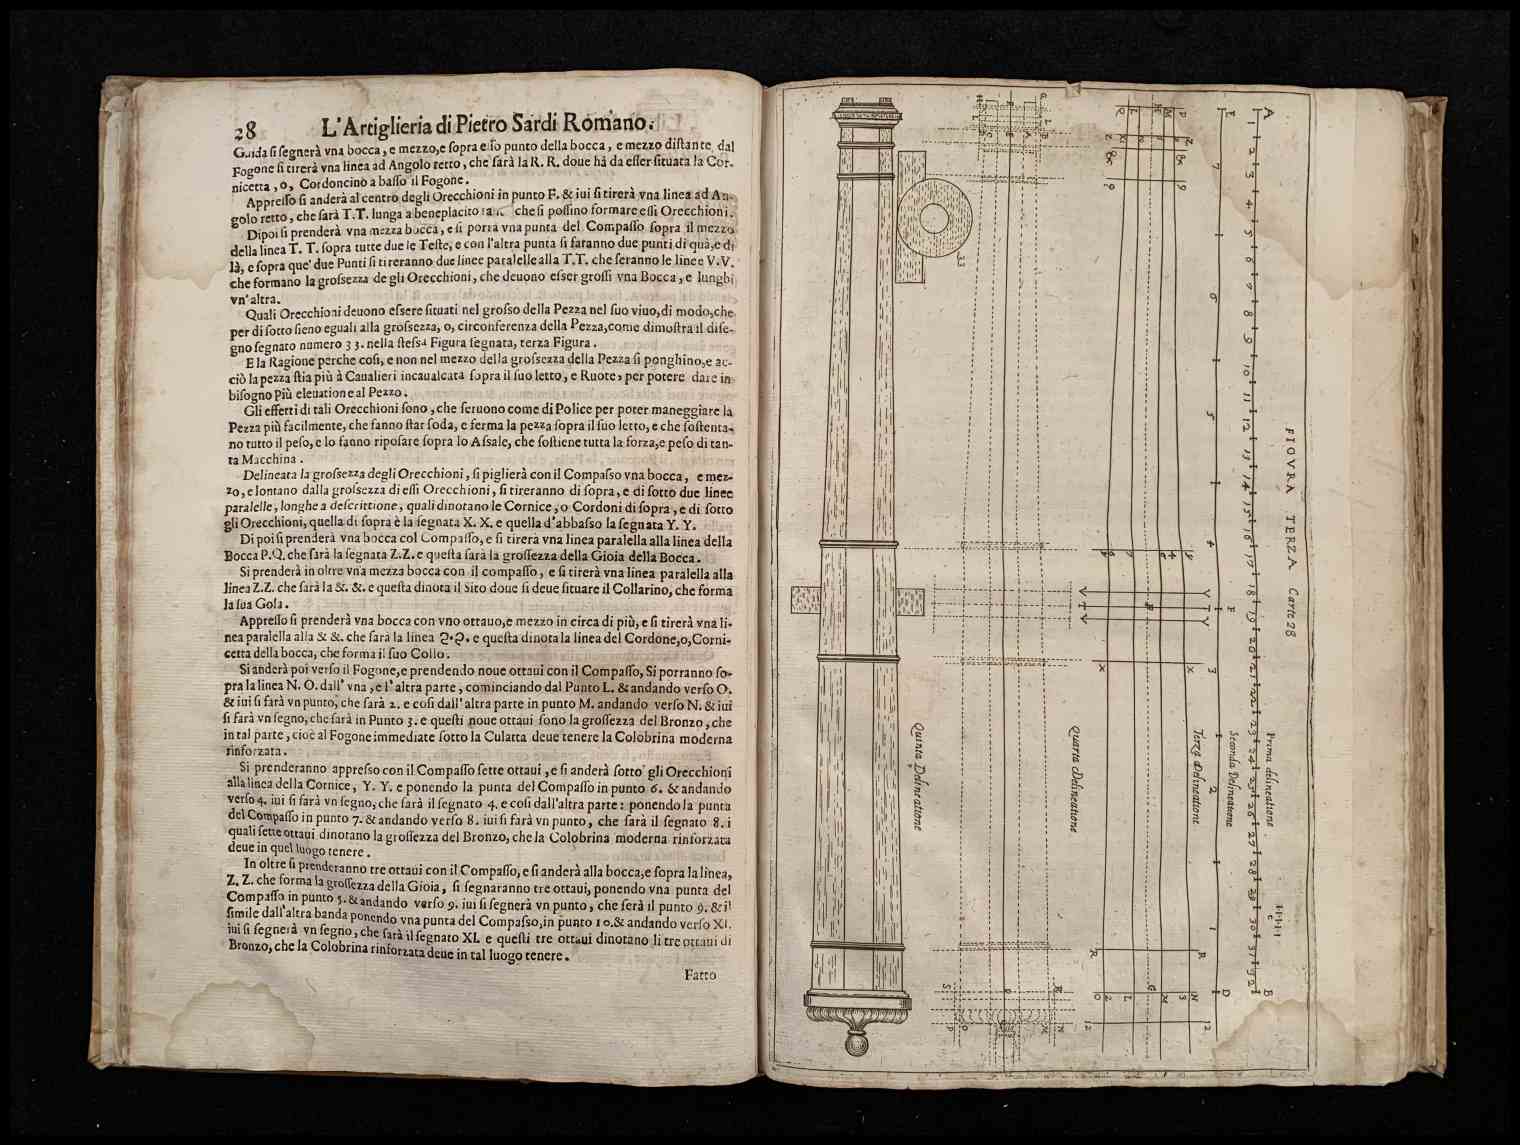 28 L'Artiglieria di Pietro Sardi Romano.
Guida ſi ſegnerà vna bocca, e mezzo,e ſopra eſſo punto della bocca, e mezzo diſtante dal
Fogone ſi tirerà vna linea ad Angolo retto, che ſarà la R. R. doue hà da eſſer ſituata la Cor-
nicetta, o, Cordoncino a baſſo il Fogone.
Appreſſo ſi anderà al centro degli Orecchioni in punto F. & iui ſi tirerà vna linea ad An-
golo retto, che ſarà T.T. lunga a beneplacito che ſi poſſino formare eſſi Orecchioni.
Dipoi ſi prenderà vna mezza bocca, e ſi porrà vna punta del Compaſſo ſopra il mezzo
della linea T. T. ſopra tutte due le Teſte, e con l'altra punta ſi faranno due punti di quà,e di
là, e ſopra que' due Punti ſi tireranno due linee paralelle alla T.T. che ſeranno le linee V.V.
che formano la groſsezza degli Orecchioni, che deuono eſser groſſi vna Bocca, e lunghi
vn'altra.
Quali Orecchioni deuono eſsere ſituati nel groſso della Pezza nel ſuo viuo,di modo,che
per di ſotto ſieno eguali alla groſsezza, o, circonferenza della Pezza,come dimoſtra il diſe-
gno ſegnato numero 33. nella ſteſsa Figura ſegnata, terza Figura.
E la Ragione perche coſi, e non nel mezzo della groſsezza della Pezza ſi ponghino,e ac-
ciò la pezza ſtia più à Caualieri incaualcata ſopra il ſuo letto, e Ruote, per potere dare in
biſogno più eleuatione al Pezzo.
Gli effetti di tali Orecchioni ſono, che ſeruono come di Police per poter maneggiare la
Pezza più facilmente, che fanno ſtar ſoda, e ferma la pezza ſopra il ſuo letto, e che ſoſtenta-
no tutto il peſo, e lo fanno ripoſare ſopra lo Aſsale, che ſoſtiene tutta la forza,e peſo di tan-
ta Macchina.
Delineata la groſsezza degli Orecchioni, ſi piglierà con il Compaſso vna bocca, e mez-
zo, e lontano dalla groſsezza di eſſi Orecchioni, ſi tireranno di ſopra, e di ſotto due linee
paralelle, longhe a deſcrittione, quali dinotano le Cornice, o Cordoni di ſopra, e di ſotto
gli Orecchioni, quella di ſopra è la ſegnata X. X. e quella d'abbaſso la ſegnata Y. Y.
Di poi ſi prenderà vna bocca col Compaſſo, e ſi tirerà vna linea paralella alla linea della
Bocca P.Q. che ſarà la ſegnata Z.Z. e queſta ſarà la groſſezza della Gioia della Bocca.
Si prenderà in oltre vna mezza bocca con il compaſſo, e ſi tirerà vna linea paralella alla
linea Z.Z. che ſarà la &. &. e queſta dinota il Sito doue ſi deue ſituare il Collarino, che forma
la ſua Gola.
Appreſſo ſi prenderà vna bocca con vno ottauo,e mezzo in circa di più, e ſi tirerà vna li-
nea paralella alla & &. che ſarà la linea e queſta dinota la linea del Cordone,o,Corni-
cetta della bocca, che forma il ſuo Collo.
Si anderà poi verſo il Fogone,e prendendo noue ottaui con il Compaſſo, Si porranno ſo-
pra la linea N. O. dall' vna, e l'altra parte, cominciando dal Punto L. & andando verſo O.
& iui ſi farà vn punto, che ſarà 2. e coſi dall'altra parte in punto M. andando verſo N. & iui
ſi farà vn ſegno, che ſarà in Punto 3. e queſti noue ottaui ſono la groſſezza del Bronzo, che
in tal parte, cioè al Fogone immediate ſotto la Culatta deue tenere la Colobrina moderna
rinforzata.
Si prenderanno appreſso con il Compaſſo ſette ottaui, e ſi anderà ſotto gli Orecchioni
alla linea della Cornice, Y. Y. e ponendo la punta del Compaſſo in punto 6. & andando
verſo 4. iui ſi farà vn ſegno, che ſarà il ſegnato 4. e coſi dall'altra parte: ponendo la punta
del Compaſſo in punto 7. & andando verſo 8. iui ſi farà vn punto, che ſarà il ſegnato 8. i
quali ſette ottaui dinotano la groſſezza del Bronzo, che la Colobrina moderna rinforzata
deue in quel luogo tenere.
In oltre ſi prenderanno tre ottaui con il Compaſſo, e ſi anderà alla bocca,e ſopra la linea,
Z. Z. che forma la groſſezza della Gioia, ſi ſegnaranno tre ottaui, ponendo vna punta del
Compaſſo in punto 5. & andando verſo 9. iui ſi ſegnerà vn punto, che ſerà il punto 9. & il
ſimile dall'altra banda ponendo vna punta del Compaſso,in punto 10.& andando verſo XI.
iui ſi ſegnerà vn ſegno, che ſarà il ſegnato XI. e queſti tre ottaui dinotano li tre ottaui di
Bronzo, che la Colobrina rinforzata deue in tal luogo tenere.
Fatto
FIGVRA TERZA Carte 28
Prima delineatione
Seconda Delineatione
Terza Delineatione
Quarta Delineatione
Quinta Delineatione
33